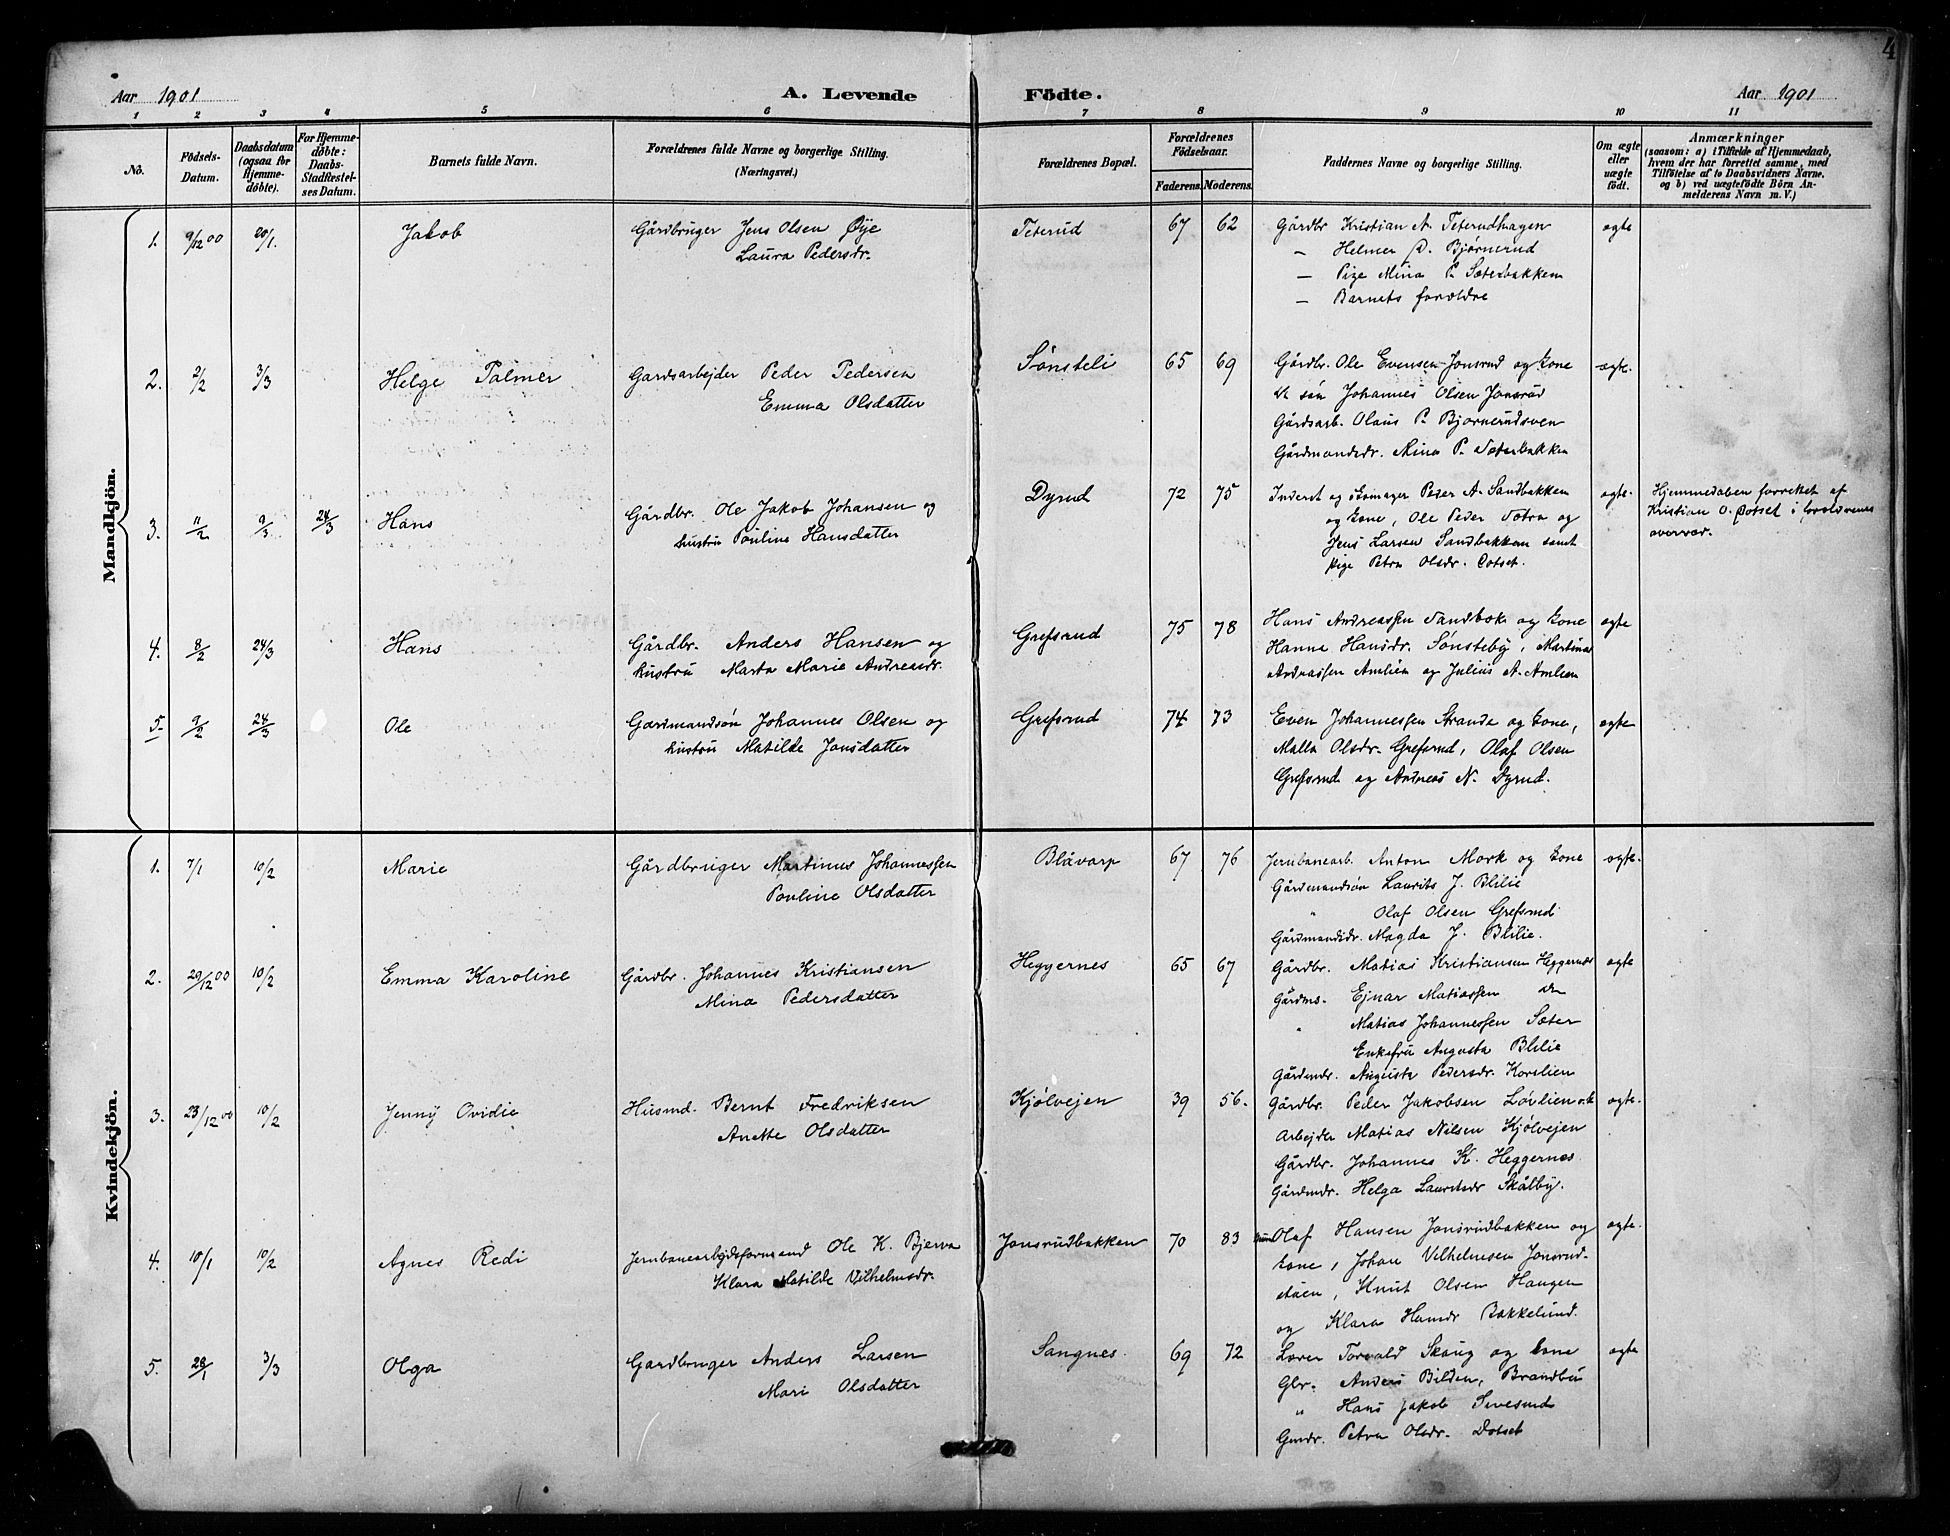 4
Aar 1901 A. Levende Födte. Aar 1901
1 2 3 4 5 6 7 8 9 10 11
No.
Födsels-Datum.
Daabsdatum (ogsaa for Hjemme-döbte).
For Hjemme-döbte: Daabs-Stadfæstel-ses Datum.
Barnets fulde Navn.
Forældrenes fulde Navne og borgerlige Stilling.
(Næringsvei.)
Forældrenes Bopæl.
Forældrenes Födselsaar.
Faderens. Moderens.
Faddernes Navne og borgerlige Stilling.
Om ægte eller uægte födt.
Anmærkninger
(saasom: a) i Tilfælde af Hjemmedaab,
hvem der har forrettet samme, med
Tilföielse af to Daabsvidners Navne,
og b) ved uægtefödte Börn An-
melderens Navn m. V.)
Mandkjön.
1. 9/12 00 20/1. Jakob Gårdbruger Jens Olsen Øye Teterud 67 62 Gårdbr Kristian A. Teterudhagen ægte
Laura Pedersdr. — Helmer P. Bjørnerud
— Pige Mina P. Sæterbakken
— Barnets forældre
2. 2/2 3/3 Helge Palmer Gardsarbejder Peder Pedersen Sønsteli 65 69 Gårdbr. Ole Evensen Jonsrud og kone ægte.
Emma Olsdatter søn Johannes Olsen Jonsrud
Gårdsarb. Olaus P. Bjørnerudsven
Gårdmandsdr. Mina P. Sæterbakken
3. 11/2 9/3 24/3 Hans Gårdbr. Ole Jakob Johansen og Dyrud 72 75 Inderst og skomager Peder A. Sandbakken ægte. Hjemmedåben forrettet af
hustru Pouline Hansdatter og kone, Ole Peder Sætra og Kristian O. Dotset i forældrenes
Jens Larsen Sandbakken samt overvær.
Pige Petra Olsdr. Dotset.
4. 8/2 24/3 Hans Gårdbr. Anders Hansen og Grefsrud 75 78 Hans Andreassen Sandbæk og kone ægte
hustru Marta Marie Andreasdr. Hanna Hansdr. Sønsteby, Martinus
Andreassen Amlien og Julius A. Amlien
5. 9/2 24/3 Ole Gardmandsøn Johannes Olsen og Grefsrud 74 73 Even Johannessen Strande og kone, ægte
hustru Matilde Jonsdatter Malla Olsdr. Grefsrud, Olaf Olsen
Grefsrud og Andreas N. Dyrud.
Kvindekjön.
1. 7/1 10/2 Marie Gårdbruger Martinus Johannessen Blåvarp 67 76 Jernbanearb. Anton Mork og kone ægte.
Pouline Olsdatter Gårdmandsøn Laurits J. Blilie
" Olaf Olsen Grefsrud
Gårdmandsdr. Magda J. Blilie.
2. 29/12 00 10/2 Emma Karoline Gårdbr. Johannes Kristiansen Heggernes 65 67 Gårdbr. Matias Kristiansen Heggernes ægte
Mina Pedersdatter Gårdms. Ejnar Matiassen
" Matias Johannessen Sæter
Enkefru Augusta Blilie
Gårdmdr. Auguste Pedersdr. Korslien
3. 23/12 00 10/2 Jenny Ovidie Husmd. Bernt Fredriksen Kjølvejen 39 56. Gårdbr. Peder Jakobsen Løvlien o.k ægte.
Anette Olsdatter Arbejder Matias Nilsen Kjølvejen
Gårdbr. Johannes K. Heggernes
Gårdmdr. Helga Lauritsdr Skålby.
4. 10/1 10/2 Agnes Redi Jernbanearbejdsformand Ole K. Bjerva Jonsrudbakken 70 83 Olaf Hansen Jonsrudbakken og ægte.
Klara Matilde Vilhelmsdr. kone, Johan Vilhelmsen Jonsrud-
støen, Knut Olsen Haugen
og Klara Hansdr Bakkelund.
5. 28/1 3/3 Olga Gardbruger Anders Larsen Sangnes. 69 72 Lærer Torvald Skaug og kone ægte
Mari Olsdatter Gbr. Anders Bilden, Brandbu
" Hans Jakob
Gmdr. Petra Olsdr. Dotset